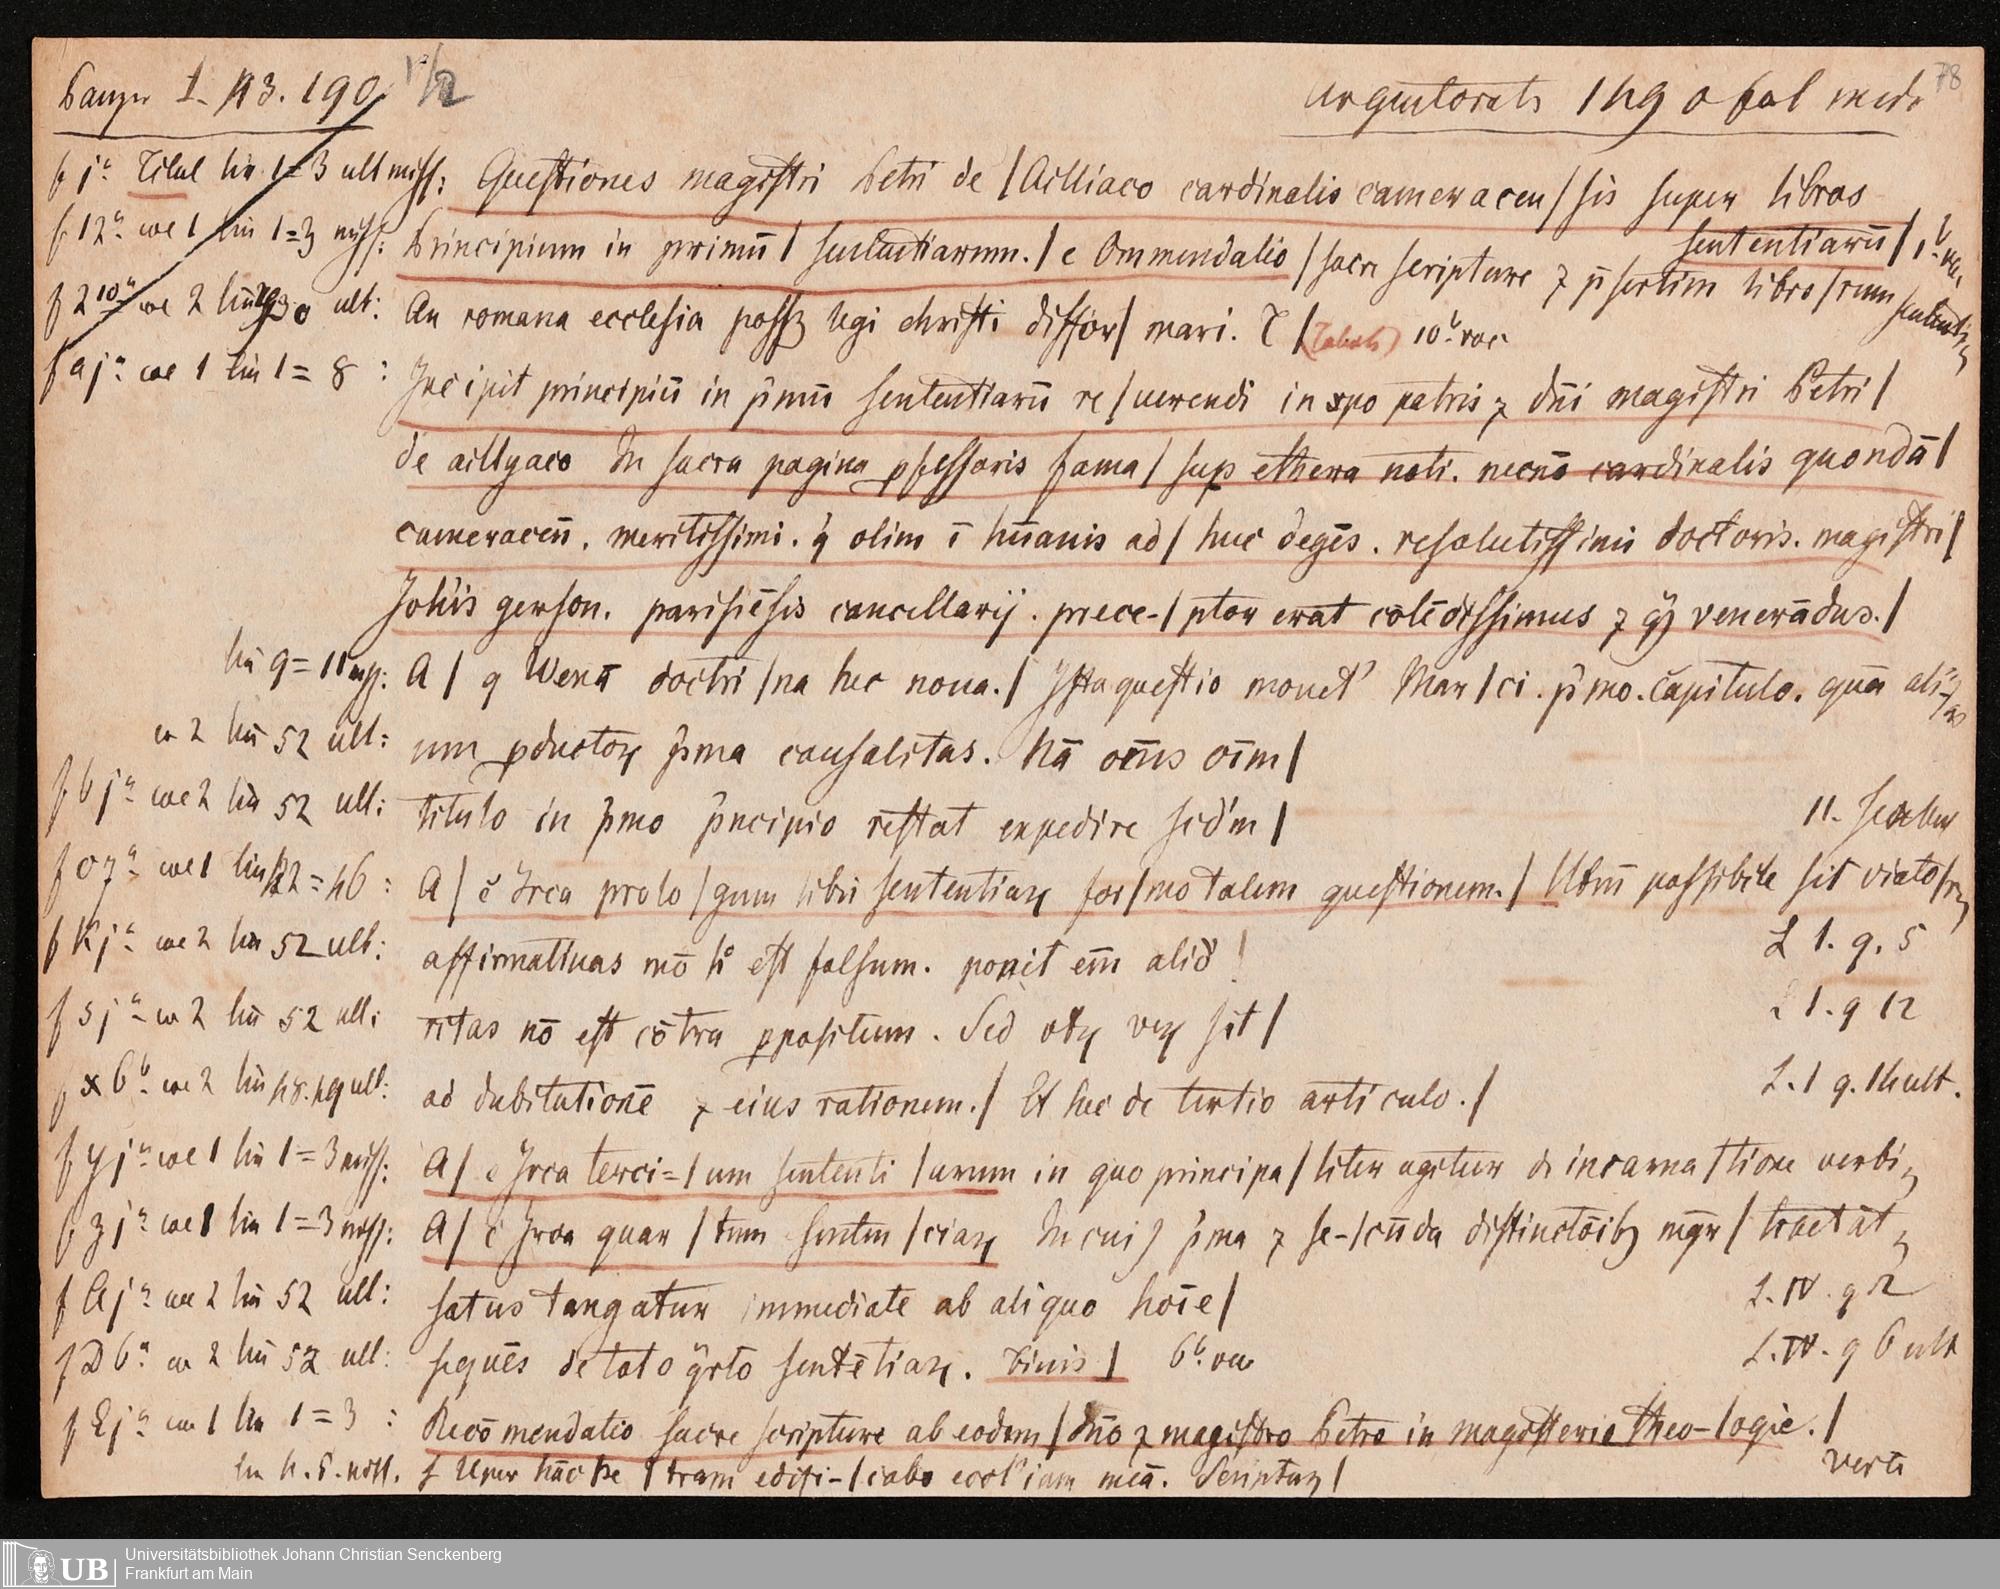 Panzer I. 43. 190 1/2
Argentorati 1490 fol med. 78
f j a Titel lin 1=3 ult miss: Questiones magistri Petri de / Ailliaco cardinalis cameracen / sis super libros
sententiarū / 1 b vac
f 12 a col 1 lin 1=3 miss: Principium in primū / sententiarum. / c Ommendatio / sacre scripture ⁊ p̄sertim libro / rum sententia
f 2 10 a col 2 lin ult: An romana ecclesia possꝫ legi christi diffor / mari. T / (Tabula) 10 b vac
f a j a col 1 lin 1=8 : Incipit principiū in p̄mū sententiarū re / uerendi in xpo patris ⁊ dn̄i magistri Petri /
de aillyaco In sacra pagina ꝓfessoris fama / suꝑ ethera noti. necnō cardinalis quondā /
cameraceñ. meritissimi. q̇ olim ī hūanis ad / huc degēs. resolutissimi doctoris. magistri /
Joh'is gerson. parisiēsis cancellarij. prece- / ptor erat colēdissimus ⁊ qꝫ venerādus. /
lin 9=11 miss: A / q Wenā doctri / na hec noua. / Ista questio mouet' Mar / ci. p̄mo. capitulo. quā
col 2 lin 52 ult: um ꝓductoꝝ p̄ma causalitas. Nā
f b j a col 2 lin 52 ult: titulo in p̄mo p̄ncipio restat expedire scd'm /
f o 7 a col 1 lin = 46 : A / c Irca prolo / gum libri sententiaꝝ for / mo talem questionem. / Utrū possibile sit viato / ri
f K j a col 2 lin 52 ult: affirmatiuas mō h° est falsum. ponit em̄ aliq̄
L 1. q. 5
f s j a col 2 lin 52 ult: ritas nō est cōtra ꝓpositum. Sed sit /
L 1. q 12
f x 6 b col 2 lin 48.49 ult: ad dubitationē ⁊ eius rationem. / Et hec de tertio articulo. /
L. 1 q. 14 ult.
f y j a col 1 lin 1=3 miss: A / c Irca terci= / um sententi / arum in quo principa / liter agitur de incarna / tione verbi
f z j a col 1 lin 1=3 miss: A / c Irca quar / tum senten / ciaꝝ In cui9 p̄ma ⁊ se- / cūda distinctōibꝫ mgr̄ / tractāt
f A j a col 2 lin 52 ult: satus tangatur immediate ab aliquo hoīe /
L. IV. q 2
f D 6 a col 2 lin 52 ult: sequēs de toto q̄rto sentētiaꝝ. Finis / 6 b vac
L. IV. q 6 ult
f E j a col 1 lin 1=3 : Recōmendatio sacre scripture ab eodem / dn̄o ⁊ magistro Petro in magisterio theo- / logie. /
lin 4.5. miss. s Uper hāc pe / tram edifi- / cabo eccl'iam meā. Scriptuꝝ /
verte
Universitätsbibliothek Johann Christian Senckenberg
UB Frankfurt am Main